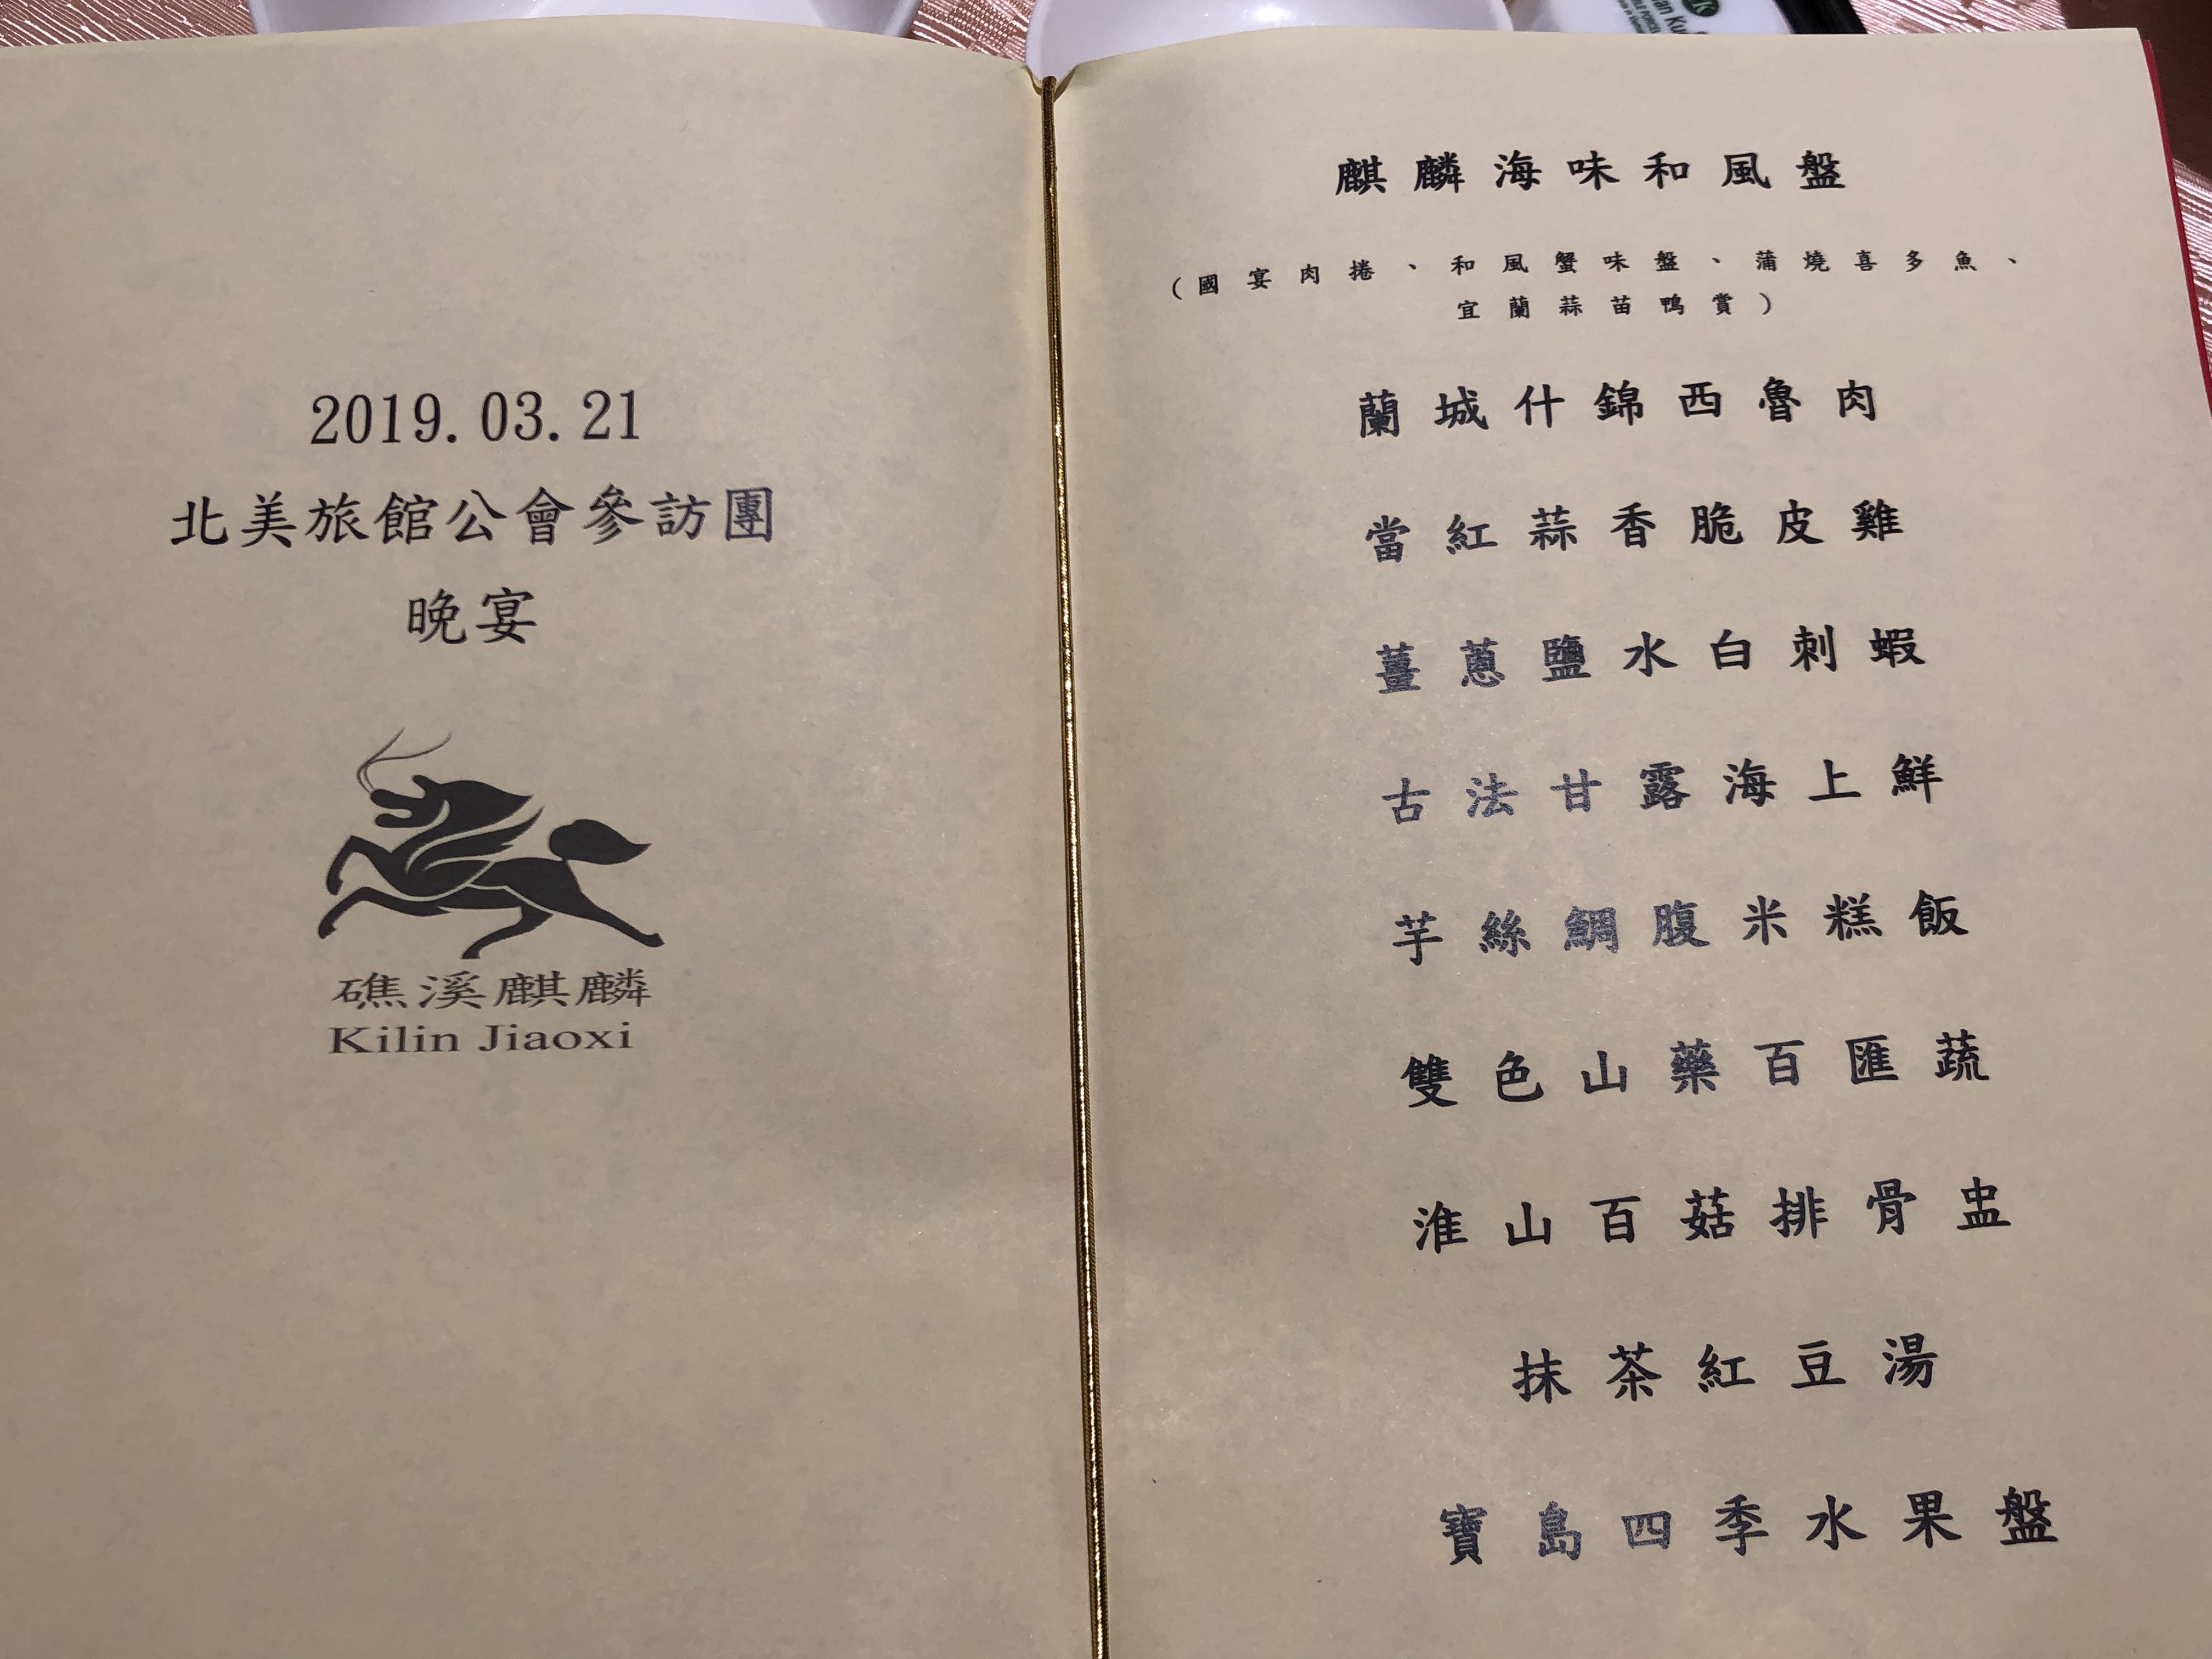 2019.03.21
北美旅館公會參訪團
晚宴
礁溪麒麟
Kilin Jiaoxi
麒麟海味和風盤
(國宴肉捲、和風蟹味盤、蒲燒喜多魚、
宜蘭蒜苗鴨賞)
蘭城什錦西魯肉
當紅蒜香脆皮雞
薑蔥鹽水白刺蝦
古法甘露海上鮮
芋絲鯛腹米糕飯
雙色山藥百匯蔬
淮山百菇排骨盅
抹茶紅豆湯
寶島四季水果盤